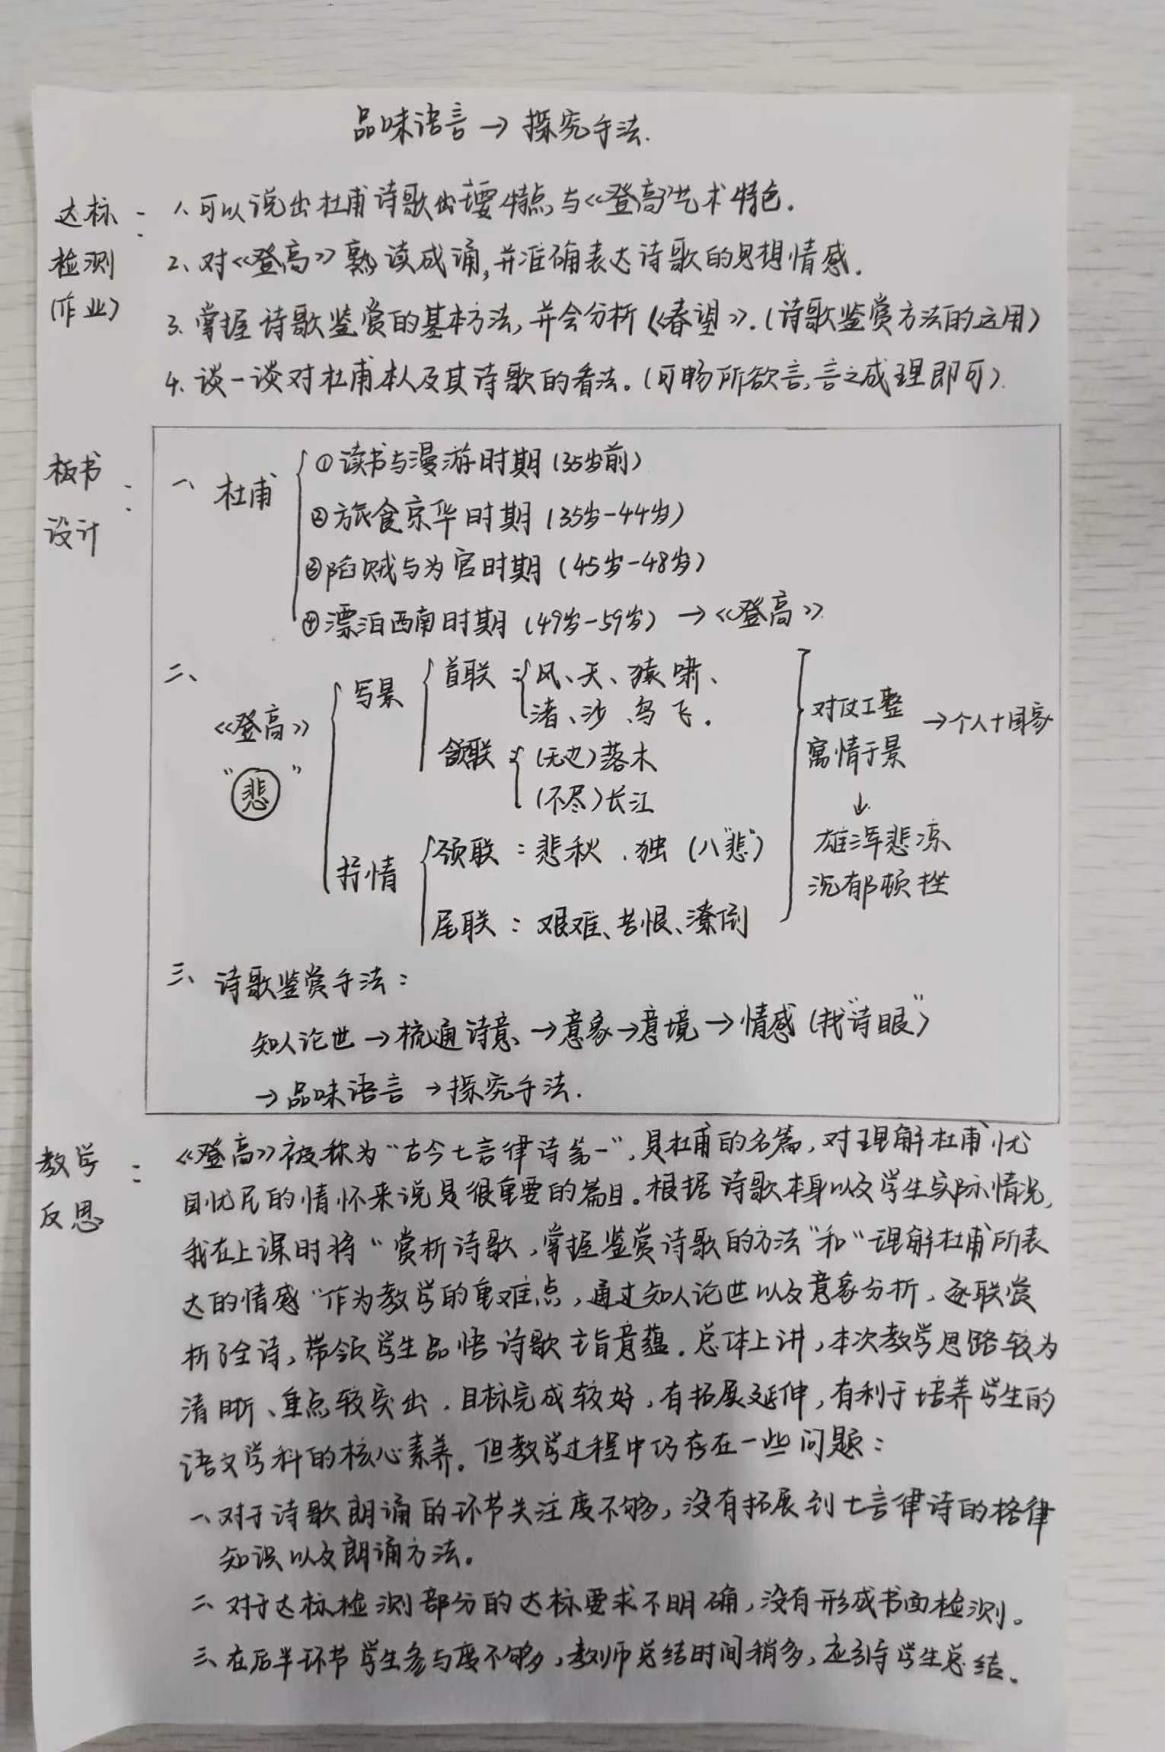 品味语言→探究手法.
达标检测(作业):
1.可以说出杜甫诗歌的主要特点与《登高》艺术特色.
2、对《登高》熟读成诵,并准确表达诗歌的思想情感.
3.掌握诗歌鉴赏的基本方法,并会分析《春望》.(诗歌鉴赏方法的运用)
4.谈一谈对杜甫本人及其诗歌的看法。(可畅所欲言,言之成理即可).
板书设计:
一、杜甫
①读书与漫游时期(35岁前)
②旅食京华时期(35岁-44岁)
③陷贼与为官时期(45岁-48岁)
④漂泊西南时期(49岁-59岁)→《登高》
二、
《登高》
"悲"
写景
首联:风、天、猿啸、
渚、沙、鸟飞.
颔联:(无边)落木
(不尽)长江
抒情
颈联:悲秋、独(八"悲")
尾联:艰难、苦恨、潦倒
对仗工整
寓情于景
→个人+国家
↓
雄浑悲凉
沉郁顿挫
三、诗歌鉴赏手法:
知人论世→梳通诗意→意象→意境→情感(找"诗眼")
→品味语言→探究手法.
教学反思:
《登高》被称为"古今七言律诗第一",是杜甫的名篇,对理解杜甫忧
国忧民的情怀来说是很重要的篇目。根据诗歌本身以及学生实际情况,
我在上课时将"赏析诗歌,掌握鉴赏诗歌的方法"和"理解杜甫所表
达的情感"作为教学的重难点,通过知人论世以及意象分析,逐联赏
析了全诗,带领学生品悟诗歌主旨意蕴.总体上讲,本次教学思路较为
清晰、重点较突出,目标完成较好,有拓展延伸,有利于培养学生的
语文学科的核心素养.但教学过程中仍存在一些问题:
一、对于诗歌朗诵的环节关注度不够,没有拓展到七言律诗的格律
知识以及朗诵方法。
二、对于达标检测部分的达标要求不明确,没有形成书面检测。
三、在后半环节学生参与度不够,教师总结时间稍多,应引导学生总结.